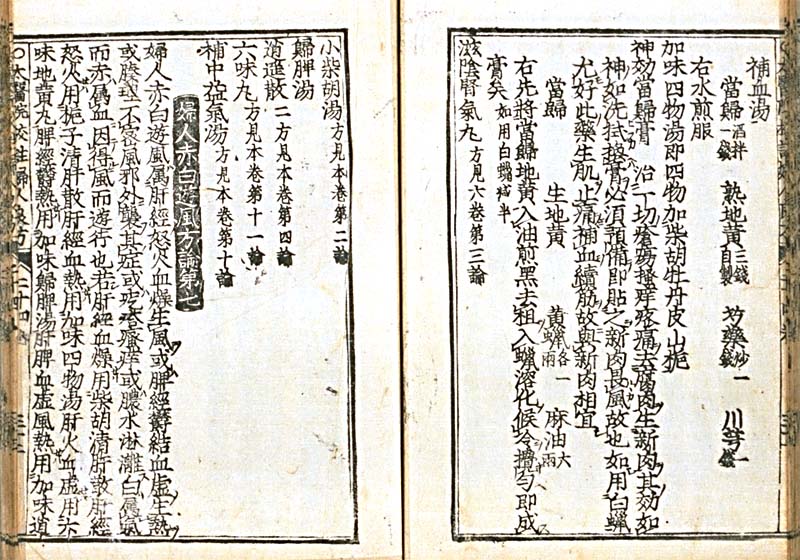 補血湯
當歸酒拌一錢 熟地黄三錢自製 芍藥炒一錢 川芎一錢
右水煎服
加味四物湯即四物加柴胡牡丹皮山梔
神効當歸膏 治一切瘡瘍搔痒疼痛去腐肉生新肉其効如
神如洗拭換膏必須預備即貼之新肉畏風故也如用白蠟
尤好此藥生肌止痛補血續筋故與新肉相宜
當歸 生地黄 黄蠟各一兩 麻油六兩
右先將當歸地黄入油煎黒去粗入蠟溶化候冷攪匀即成
膏矣如用白蠟減半
滋陰腎氣丸 方見六卷第三論
小柴胡湯 方見本卷第二論
歸脾湯
逍遥散 二方見本卷第四論
六味丸 方見本卷第十一論
補中益氣湯 方見本卷第十論
婦人赤白遊風方論第七
婦人赤白遊風属肝經怒火血燥生風或脾經欝結血虚生熱
或腠理不密風邪外襲其症或疙瘩癢痒或膿水淋漓白属氣
而赤属血因得風而遊行也若肝經血燥用柴胡清肝散肝經
怒火用梔子清肝散肝經血熱用加味四物湯肝火血虚用六
味地黄丸脾經欝熱用加味歸脾湯肝脾血虚風熱用加味逍
○太醫院校註婦人良方 二十四 三十三